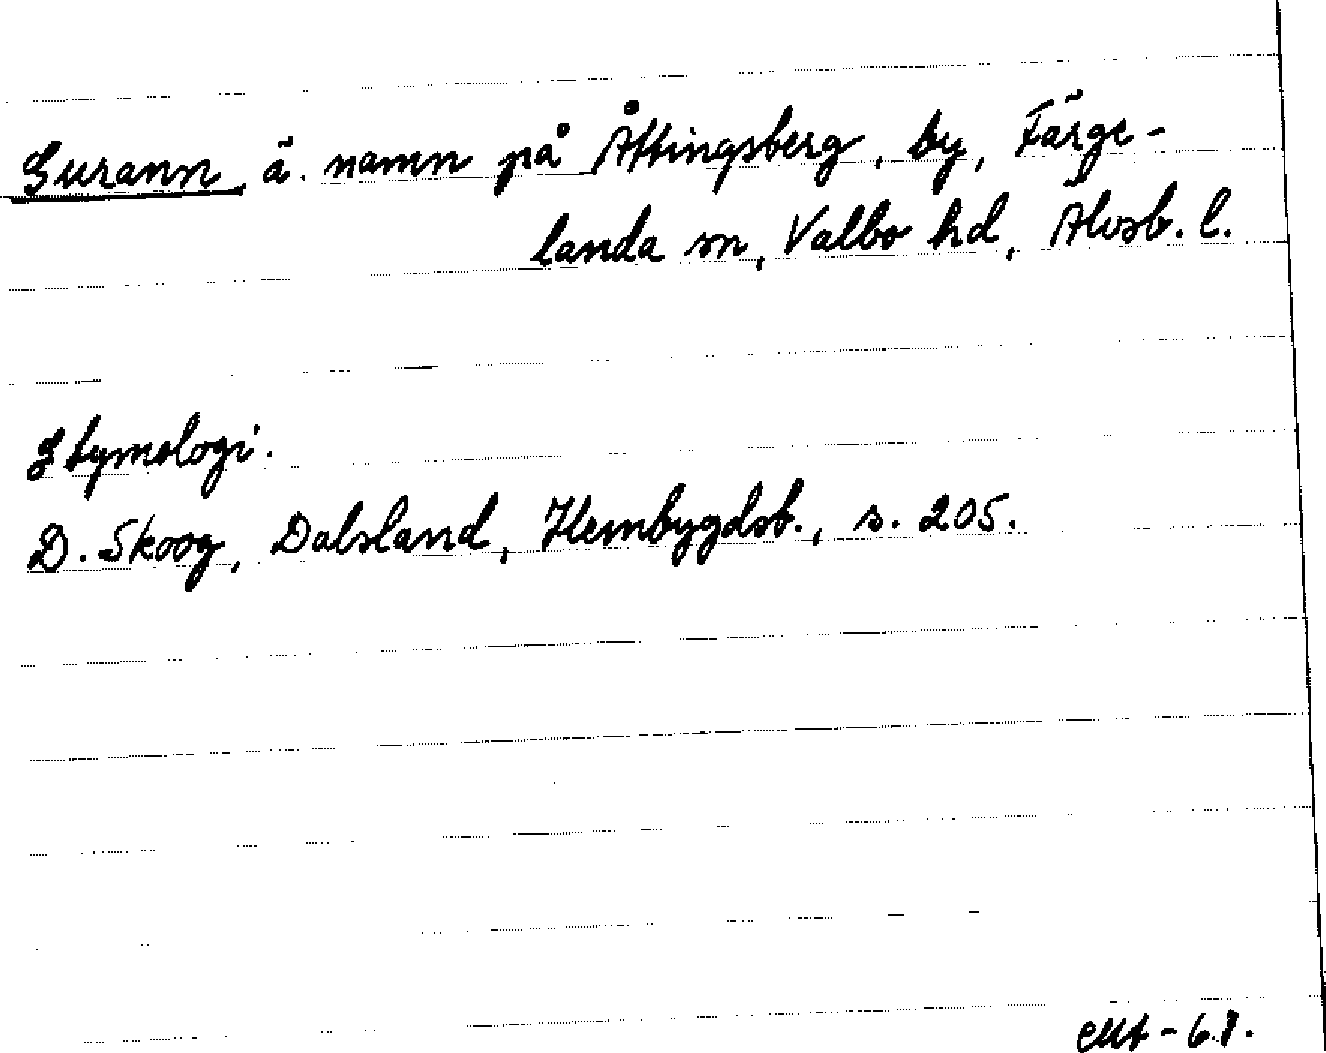 Eurann ä. namn på Åttingsberg, by, Färge-
landa sn, Valbo hd, Älvsb. l.
Etymologi.
D. Skoog, Dalsland, Hembygdsb., s. 205.